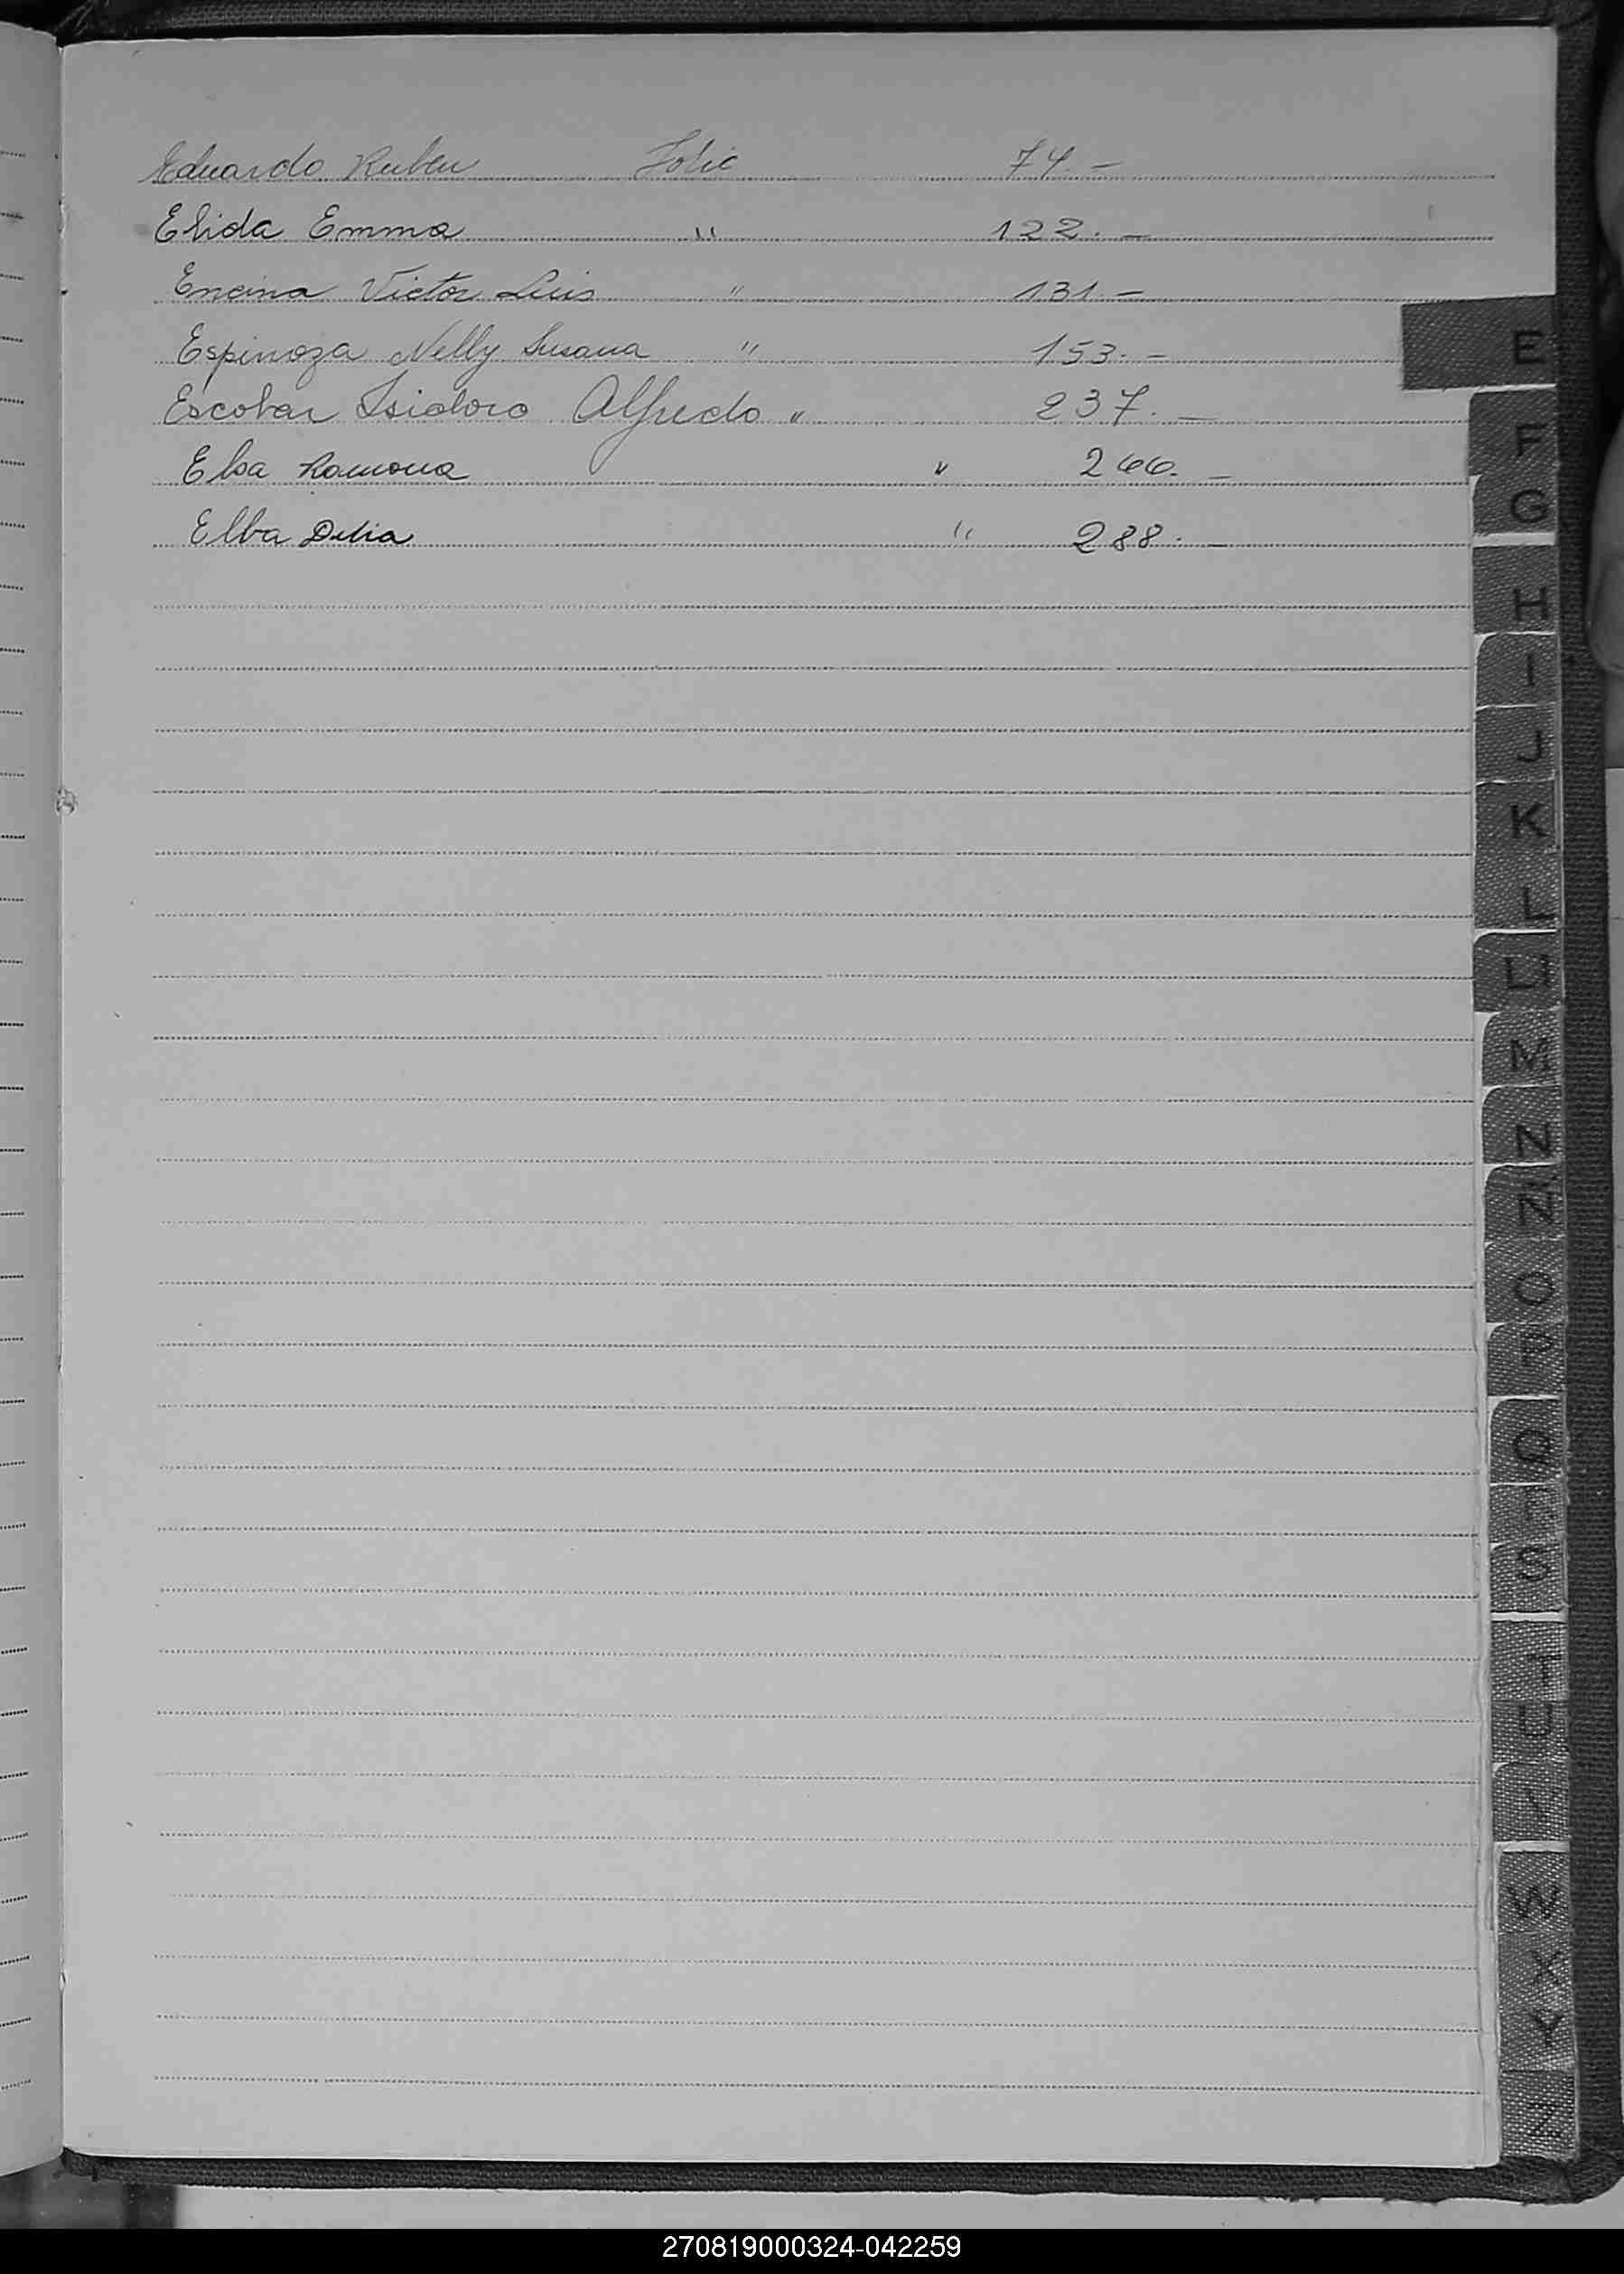 Eduardo Ruben Folio 74.-
Elida Emma " 122.-
Encina Victor Luis " 131.-
Espinoza Nelly Susana " 153.-
Escobar Isidoro Alfredo " 237.-
Elsa Ramona " 266.-
Elba Delia " 288.-
E
F
G
H
I
J
K
L
LL
M
N
Ñ
O
P
Q
R
S
T
U
V
W
X
Y
Z
270819000324-042259